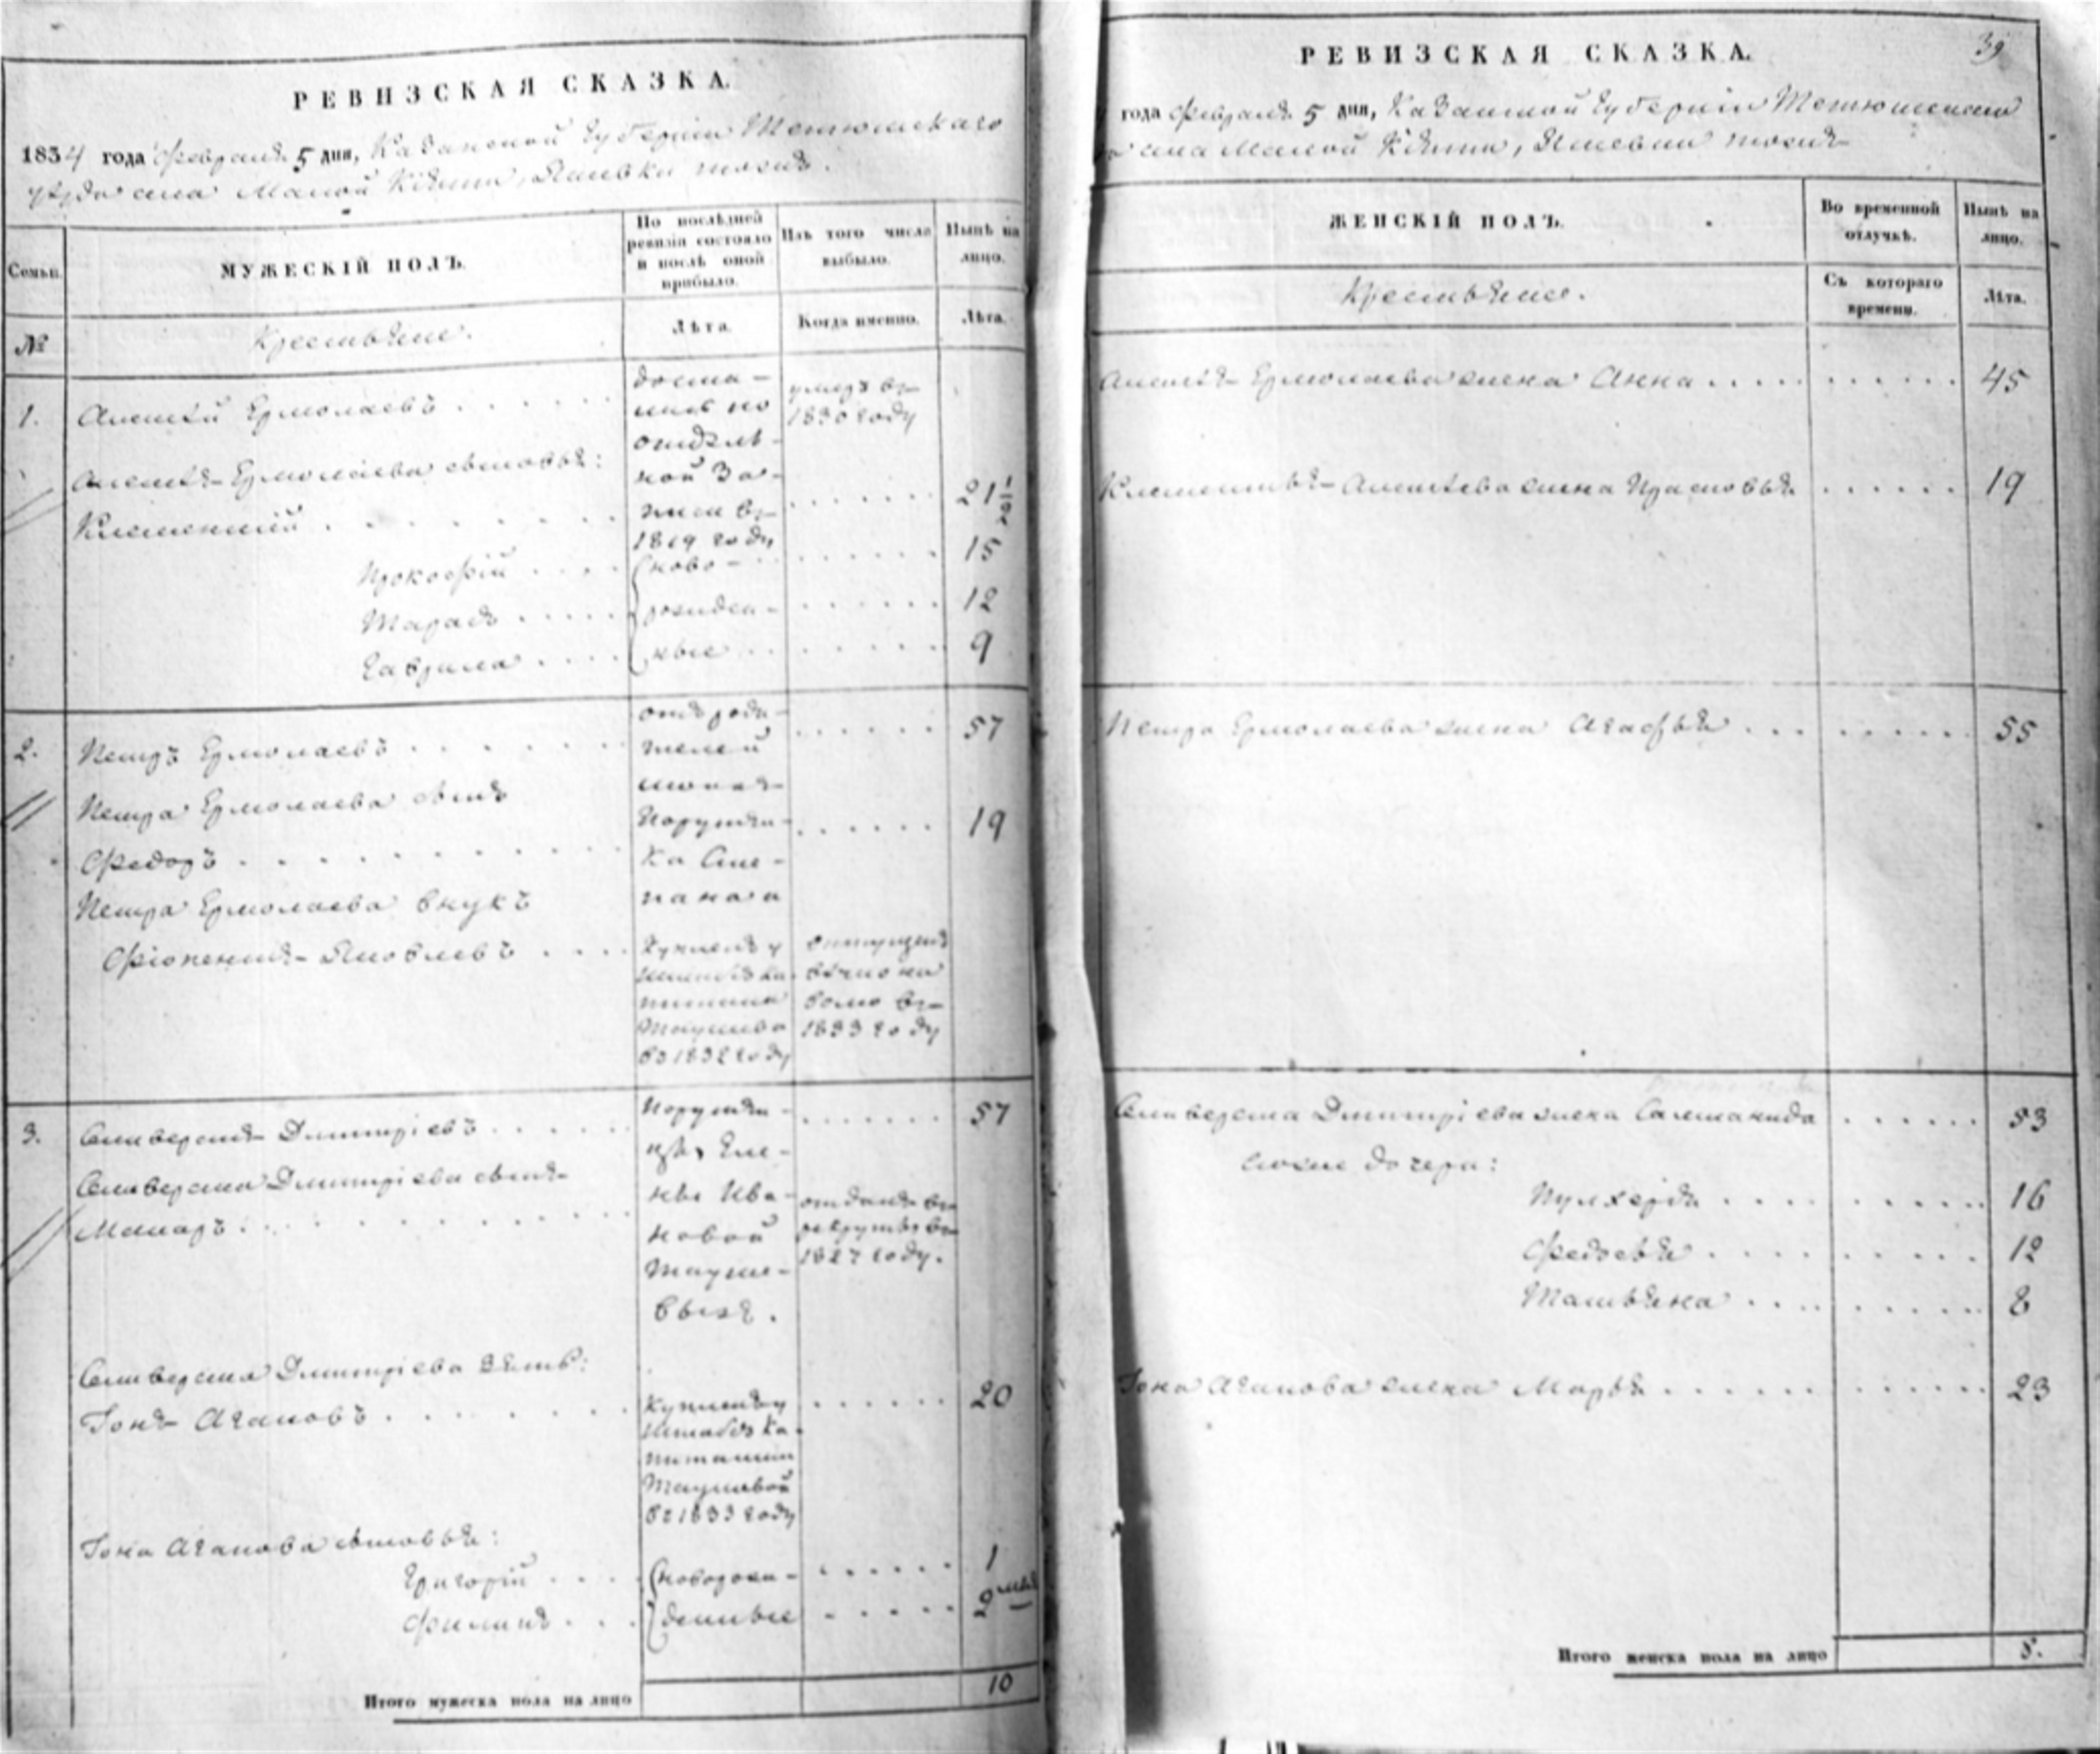 РЕВИЗСКАЯ СКАЗКА.
1834 года Февраля 5 дня, Казанской Губернии Тетюшскаго
уѣзда села Малой Яшевки тожъ.
Семьи.
МУЖЕСКІЙ ПОЛЪ.
По послѣдней
ревизіи состояло
и послѣ оной
прибыло.
Изъ того числа
выбыло.
Нынѣ на
лицо.
№
Крестьяне.
Лѣта.
Когда именно.
Лѣта.
1.
Алексѣй Ермолаевъ
доста-
лись по
отдѣль-
ной за-
писи въ
1819 году
умеръ въ
1830 году
Алексѣя Ермолаева сыновья:
Клементий
21 1/2
Прокофій
ново-
15
Тарасъ
рожден-
12
Гаврила
ные
9
2.
Петръ Ермолаевъ
57
отъ роди-
телей
Поручи-
ка Сте-
пана
Петра Ермолаева сынъ
Федоръ
19
Петра Ермолаева внукъ
Яковлевъ
Купленъ у
штабсъ ка-
питана
въ 1832 году
отпущенъ
вѣчно на
волю въ
1833 году
3.
Селиверстъ Дмитріевъ
57
Поручи-
цы Еле-
ны Ива-
новой
Селиверста Дмитріева сынъ
Макаръ
отданъ въ
рекруты въ
1827 году.
Селиверста Дмитріева зять:
Іонъ Агаповъ
20
Купленъ у
Штабсъ Ка-
питанши
въ 1833 году
Іона Агапова сыновья:
Григорій
новорож-
1
Филипъ
денные
2 мѣс
Итого мужеска пола на лицо
10
39
РЕВИЗСКАЯ СКАЗКА.
года Февраля 5 дня, Казанской Губерніи
села Малой тожъ
ЖЕНСКІЙ ПОЛЪ.
Во временной
отлучкѣ.
Нынѣ на
лицо.
Крестьяне.
Съ котораго
времени.
Лѣта.
Алексѣя Ермолаева жена Анна
45
Клементья Алексѣева жена Прасковья
19
Петра Ермолаева жена Агафья
55
Селиверста Дмитріева жена Саломанида
53
дочери:
Пулхерія
16
Федосья
12
Татьяна
8
Іона Агапова жена Марья
23
Итого женска пола на лицо
8.